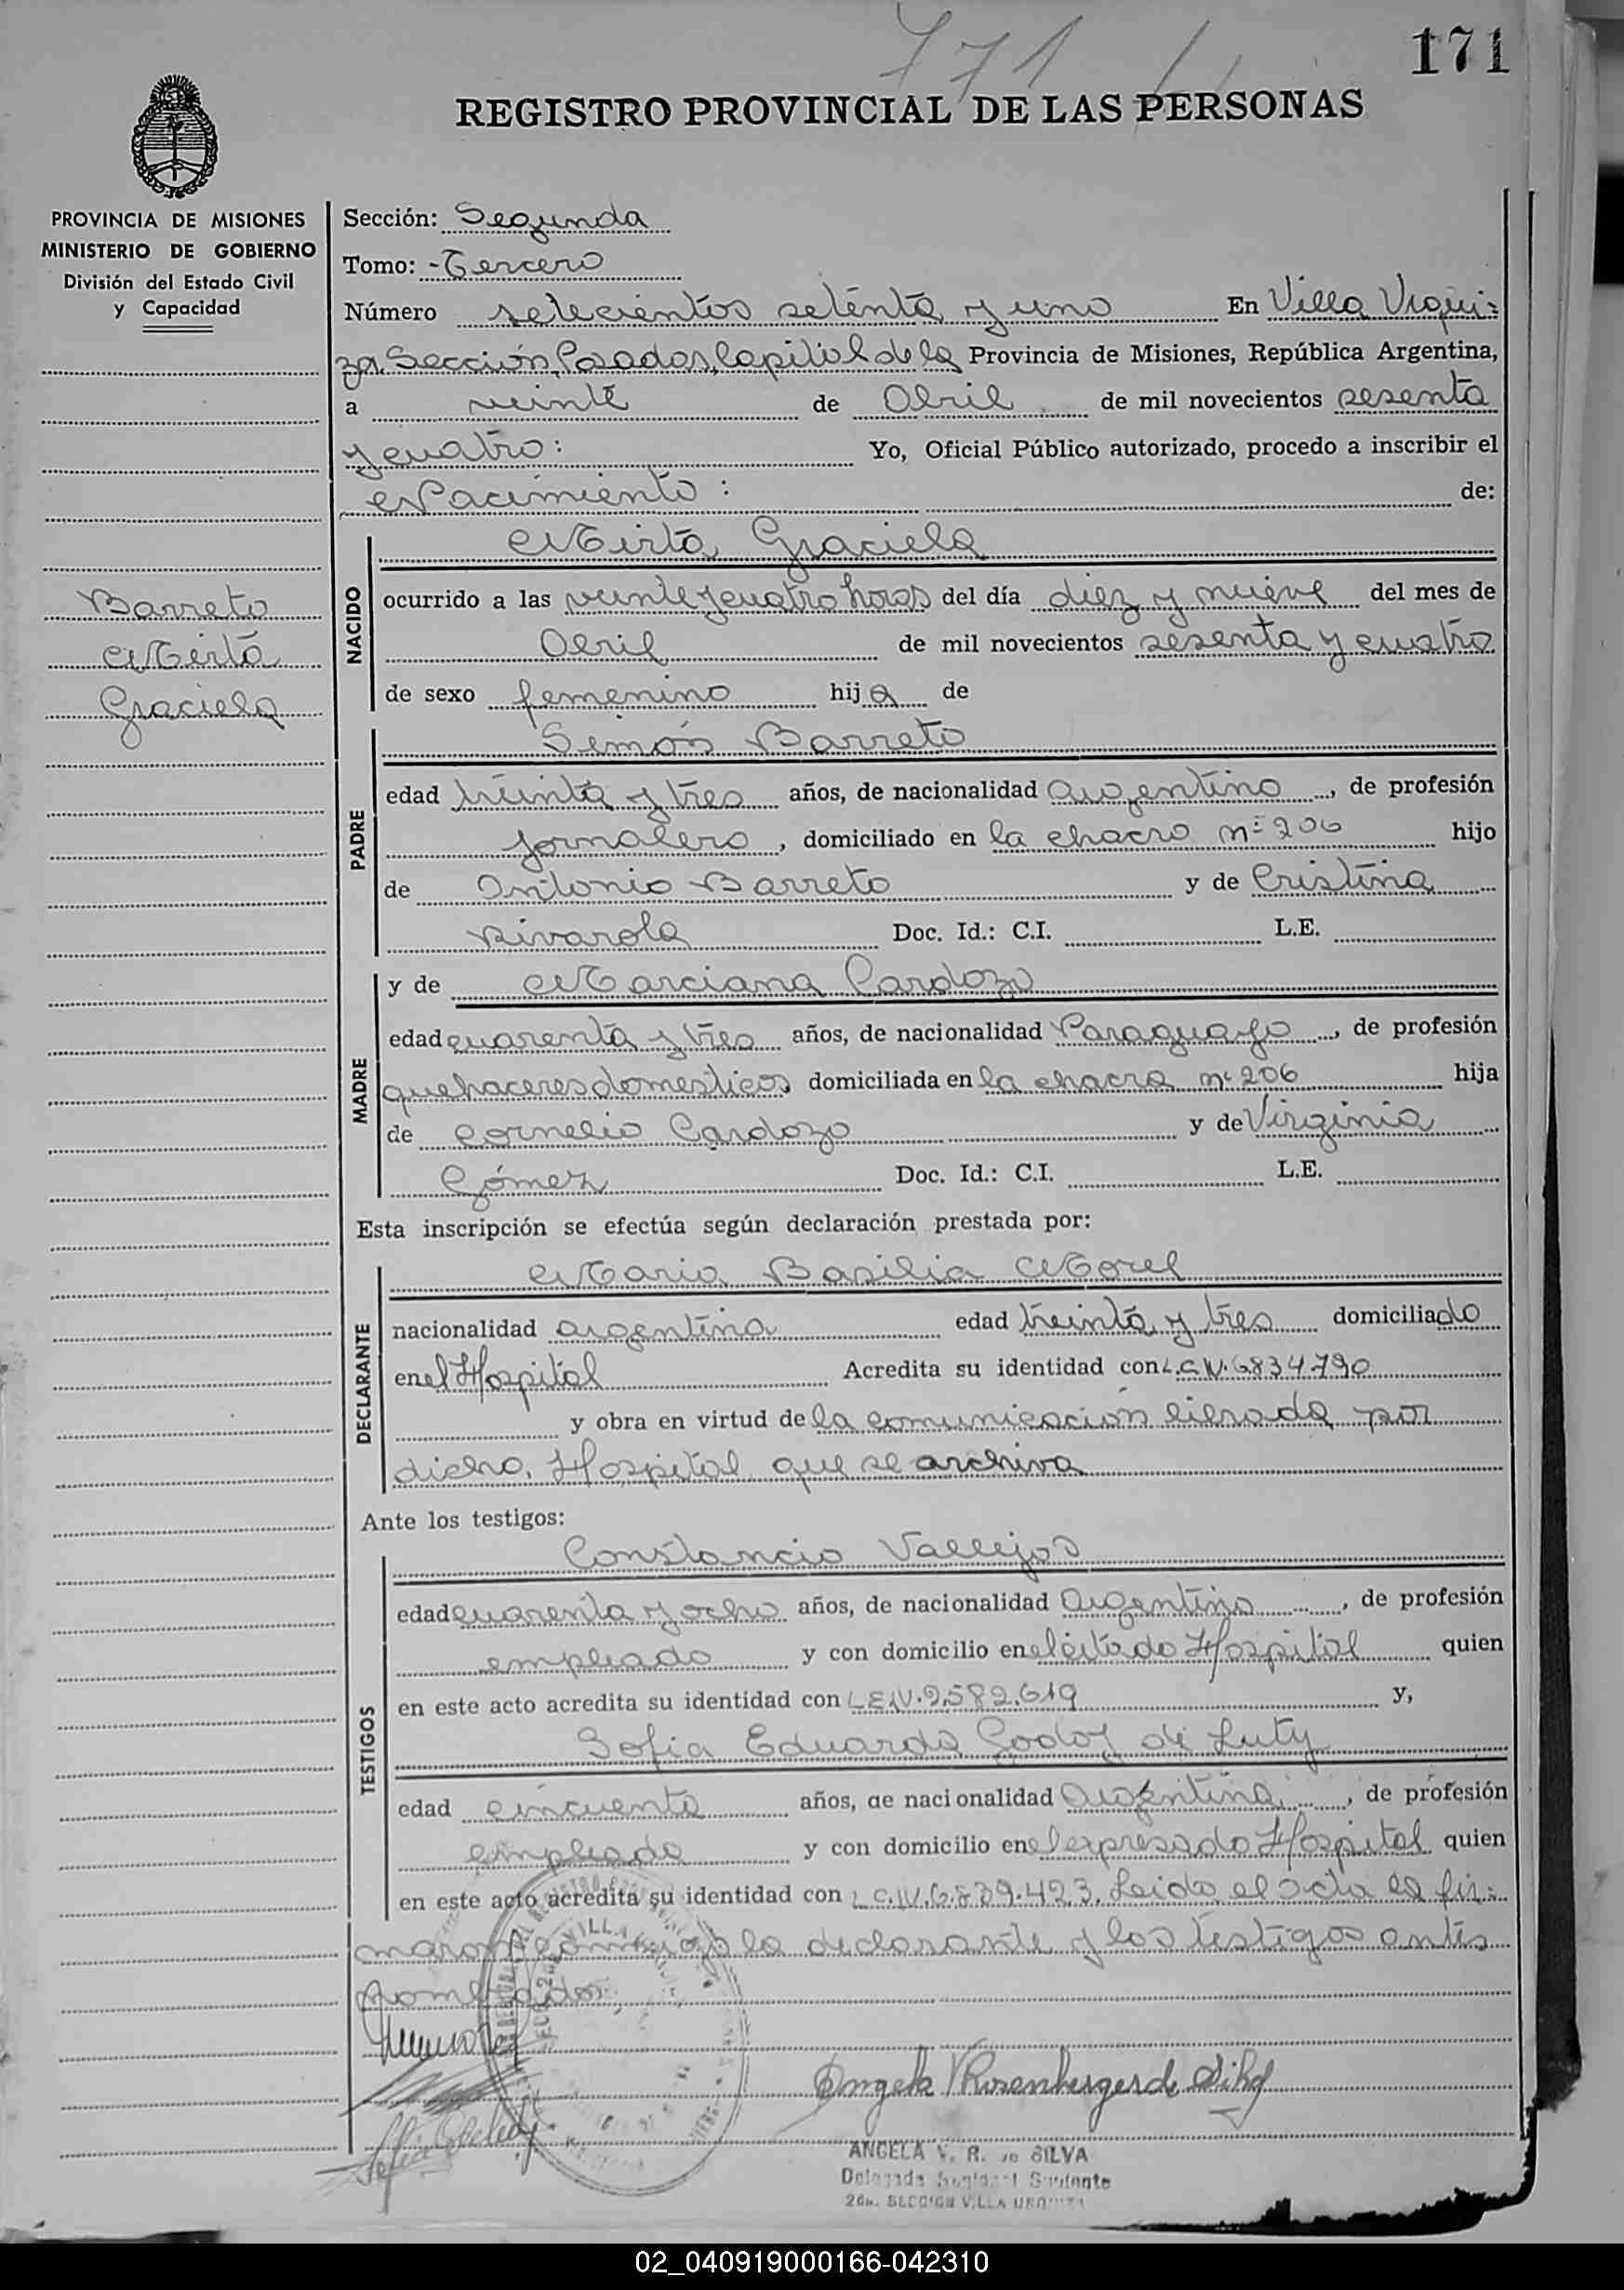 771
171
REGISTRO PROVINCIAL DE LAS PERSONAS
PROVINCIA DE MISIONES
MINISTERIO DE GOBIERNO
División del Estado Civil
y Capacidad
Barreto
Mirta
Graciela
Sección: Segunda
Tomo: -Tercero
Número setecientos setenta y uno En Villa Urqui-
za, Sección, Posadas, Capital de la Provincia de Misiones, República Argentina,
a veinte de Abril de mil novecientos sesenta
y cuatro: Yo, Oficial Público autorizado, procedo a inscribir el
Nacimiento: de:
NACIDO
Mirta Graciela
ocurrido a las veinte y cuatro horas del día diez y nueve del mes de
Abril de mil novecientos sesenta y cuatro
de sexo femenino hija de
PADRE
Simón Barreto
edad treinta y tres años, de nacionalidad argentino, de profesión
jornalero, domiciliado en la chacra nº 206 hijo
de Antonio Barreto y de Cristina
Rivarola Doc. Id.: C.I. L.E.
MADRE
y de Marciana Cardozo
edad cuarenta y tres años, de nacionalidad Paraguaya, de profesión
quehaceres domesticos domiciliada en la chacra nº 206 hija
de Cornelio Cardozo y de Virginia
Gómez Doc. Id.: C.I. L.E.
Esta inscripción se efectúa según declaración prestada por:
DECLARANTE
Maria Basilia Morel
nacionalidad argentina edad treinta y tres domiciliado
en el Hospital Acredita su identidad con L.C.N. 6834790
y obra en virtud de la comunicación librada por
dicho Hospital que se archiva
Ante los testigos:
TESTIGOS
Constancio Vallejos
edad cuarenta y ocho años, de nacionalidad Argentino, de profesión
empleado y con domicilio en el citado Hospital quien
en este acto acredita su identidad con L.E.N. 2.582.619 y,
Sofia Eduarda Godoy de Luty
edad cincuenta años, de nacionalidad Argentina, de profesión
empleada y con domicilio en el expresado Hospital quien
en este acto acredita su identidad con L.C.N. 6.839.423. Leida el acta la fir-
maron conmigo la declarante y los testigos antes
nombrados
Angela V Rosenberger de Silva
ANGELA V. R. de SILVA
Delegada Suplente
2da. SECCION VILLA URQUIZA
02_040919000166-042310